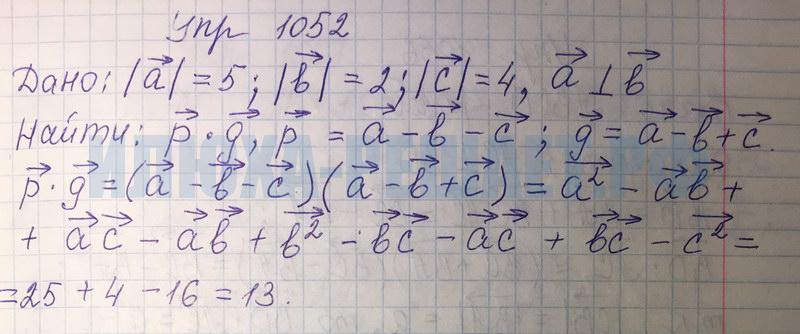 Упр 1052
Дано: |a⃗| = 5; |b⃗| = 2; |c⃗| = 4, a⃗ ⊥ b⃗
Найти: p⃗ · g⃗, p⃗ = a⃗ - b⃗ - c⃗; g⃗ = a⃗ - b⃗ + c⃗.
p⃗ · g⃗ = (a⃗ - b⃗ - c⃗)(a⃗ - b⃗ + c⃗) = a⃗² - a⃗b⃗ +
+ a⃗c⃗ - a⃗b⃗ + b⃗² - b⃗c⃗ - a⃗c⃗ + b⃗c⃗ - c⃗² =
= 25 + 4 - 16 = 13.